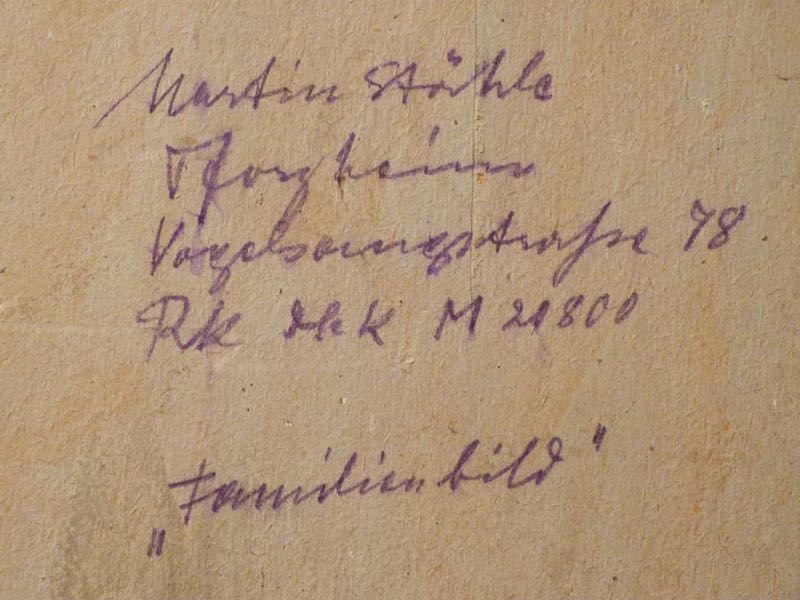 Martin Stähle
Pforzheim
Vogelsangstraße 78
RK dbK M 21800
„Familienbild"